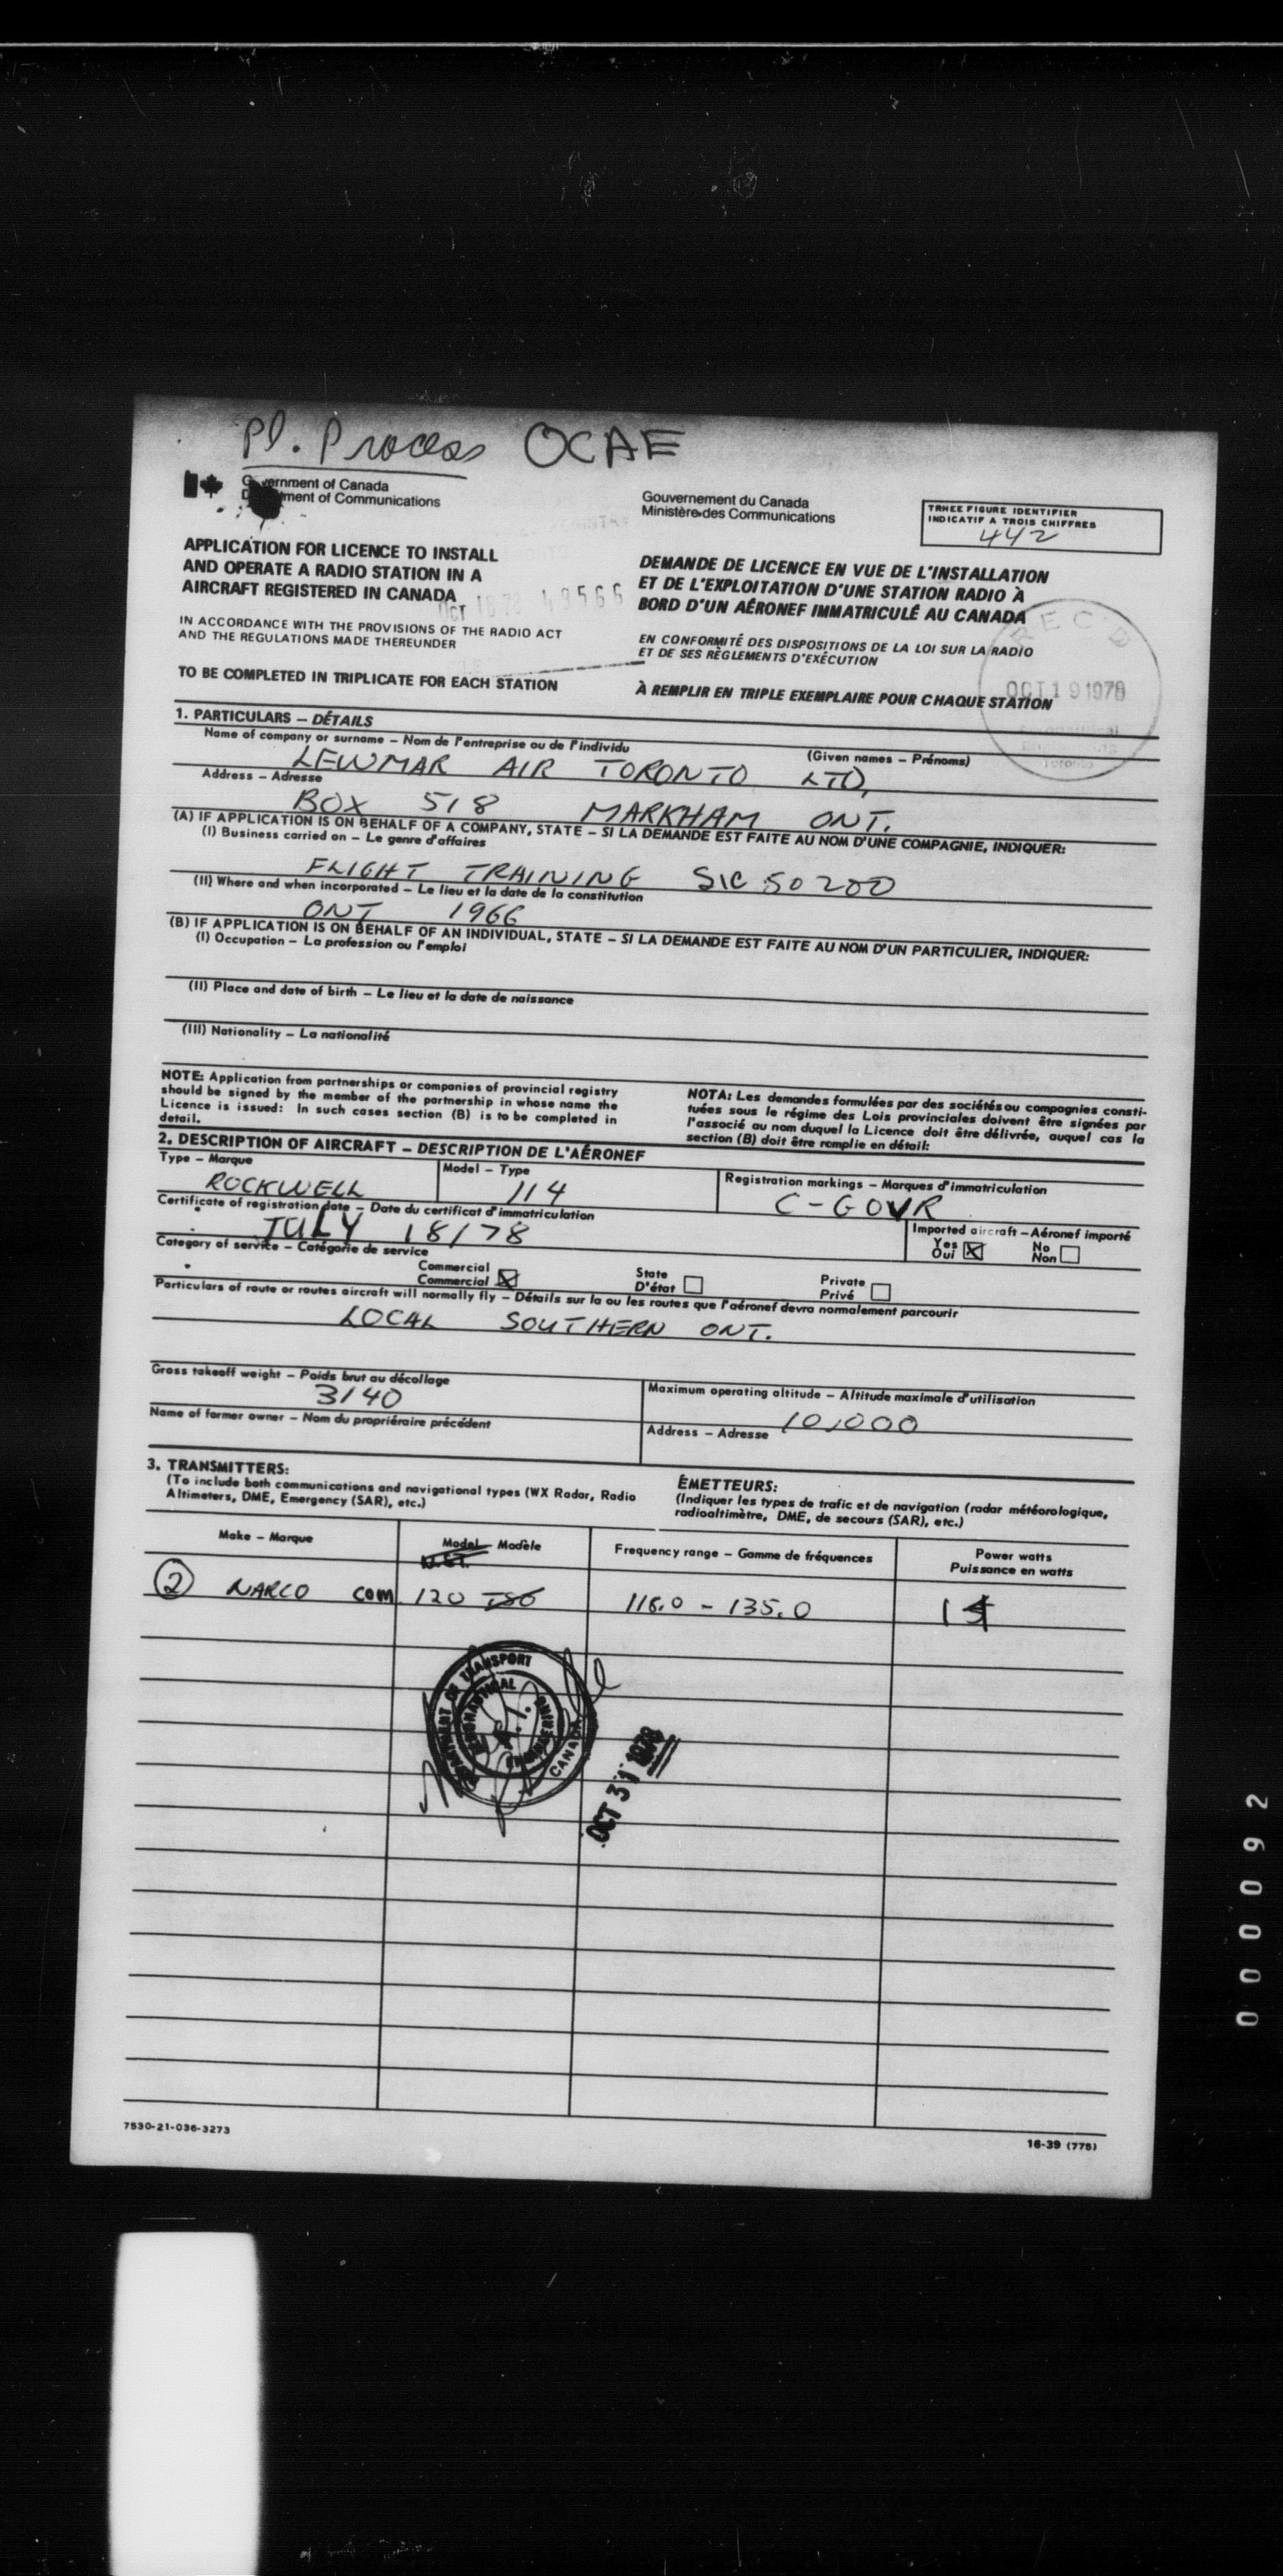 Pl. Process OCAE
Government of Canada
Department of Communications
Gouvernement du Canada
Ministère des Communications
TRHEE FIGURE IDENTIFIER
INDICATIF A TROIS CHIFFRES
442
APPLICATION FOR LICENCE TO INSTALL
AND OPERATE A RADIO STATION IN A
AIRCRAFT REGISTERED IN CANADA
OCT 18 78 49566
DEMANDE DE LICENCE EN VUE DE L'INSTALLATION
ET DE L'EXPLOITATION D'UNE STATION RADIO À
BORD D'UN AÉRONEF IMMATRICULÉ AU CANADA
IN ACCORDANCE WITH THE PROVISIONS OF THE RADIO ACT
AND THE REGULATIONS MADE THEREUNDER
EN CONFORMITÉ DES DISPOSITIONS DE LA LOI SUR LA RADIO
ET DE SES RÈGLEMENTS D'EXÉCUTION
TO BE COMPLETED IN TRIPLICATE FOR EACH STATION
À REMPLIR EN TRIPLE EXEMPLAIRE POUR CHAQUE STATION
OCT 19 1978
Toronto
1. PARTICULARS – DÉTAILS
Name of company or surname – Nom de l'entreprise ou de l'individu (Given names – Prénoms)
LEWMAR AIR TORONTO LTD,
Address – Adresse
BOX 518 MARKHAM ONT.
(A) IF APPLICATION IS ON BEHALF OF A COMPANY, STATE – SI LA DEMANDE EST FAITE AU NOM D'UNE COMPAGNIE, INDIQUER:
(I) Business carried on – Le genre d'affaires
FLIGHT TRAINING SIC 50200
(II) Where and when incorporated – Le lieu et la date de la constitution
ONT 1966
(B) IF APPLICATION IS ON BEHALF OF AN INDIVIDUAL, STATE – SI LA DEMANDE EST FAITE AU NOM D'UN PARTICULIER, INDIQUER:
(I) Occupation – La profession ou l'emploi
(II) Place and date of birth – Le lieu et la date de naissance
(III) Nationality – La nationalité
NOTE: Application from partnerships or companies of provincial registry
should be signed by the member of the partnership in whose name the
Licence is issued: In such cases section (B) is to be completed in
detail.
NOTA: Les demandes formulées par des sociétés ou compagnies consti-
tuées sous le régime des Lois provinciales doivent être signées par
l'associé au nom duquel la Licence doit être délivrée, auquel cas la
section (B) doit être remplie en détail:
2. DESCRIPTION OF AIRCRAFT – DESCRIPTION DE L'AÉRONEF
Type – Marque
ROCKWELL
Model – Type
114
Registration markings – Marques d'immatriculation
C-GOVR
Certificate of registration date – Date du certificat d'immatriculation
JULY 18/78
Imported aircraft – Aéronef importé
Yes No
Oui Non
Category of service – Catégorie de service
Commercial State Private
Commercial D'état Privé
Particulars of route or routes aircraft will normally fly – Détails sur la ou les routes que l'aéronef devra normalement parcourir
LOCAL SOUTHERN ONT.
Gross takeoff weight – Poids brut au décollage
3140
Maximum operating altitude – Altitude maximale d'utilisation
10,000
Name of former owner – Nom du propriéraire précédent
Address – Adresse
3. TRANSMITTERS:
(To include both communications and navigational types (WX Radar, Radio
Altimeters, DME, Emergency (SAR), etc.)
ÉMETTEURS:
(Indiquer les types de trafic et de navigation (radar météorologique,
radioaltimètre, DME, de secours (SAR), etc.)
Make – Marque
Model – Modèle
Frequency range – Gamme de fréquences
Power watts
Puissance en watts
2 NARCO COM 120 118.0 – 135.0
DEPARTMENT OF TRANSPORT
AERONAUTICAL ENGINEERING
A.I.
CANADA
OCT 31 1978
7530-21-036-3273
16-39 (775)
000092